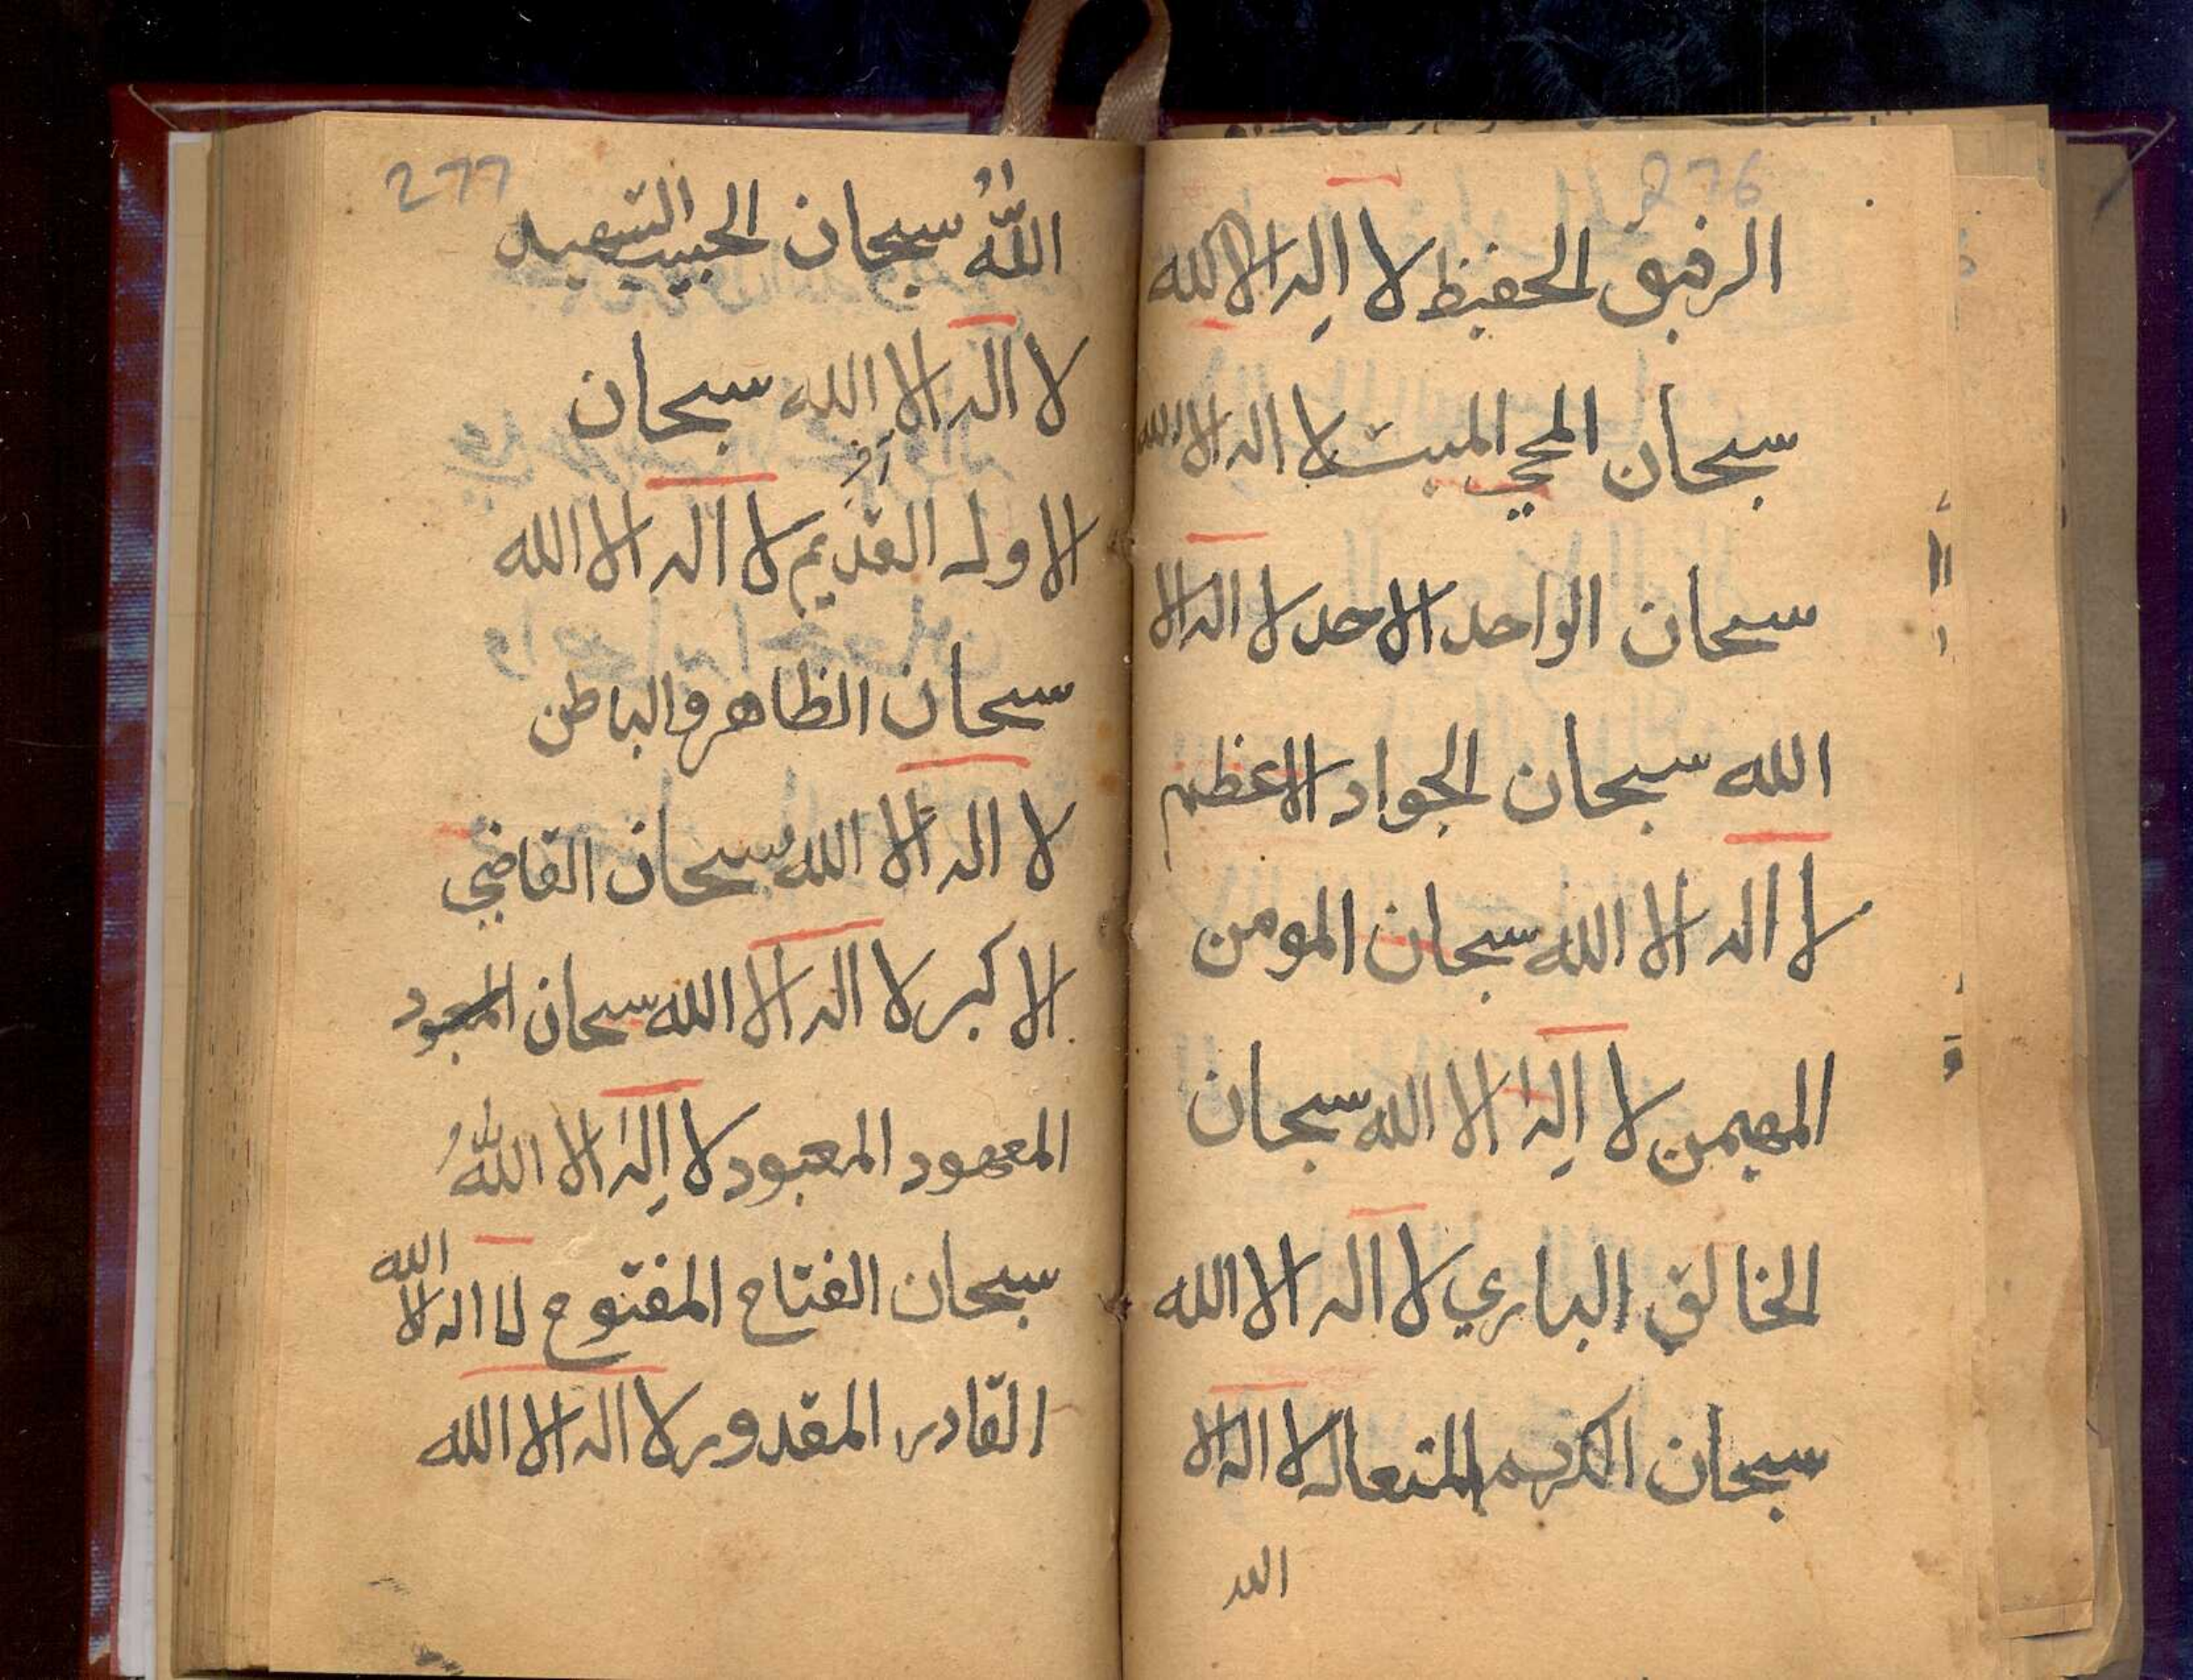 276
الرفيق الحفيظ لا اِله الا الله
سبحان المحيي المميت لا اله الا الله
سبحان الواحد الاحد لا اله الا
الله سبحان الجواد الاعظم
لا اله الا الله سبحان المومن
المهيمن لا اِله الا الله سبحان
الخالق الباري لا اله الا الله
سبحان الكريم المتعال لا اله الا
الله
277
اللّٰهُ سبحان الحبيب الشهيد
لا اله الا الله سبحان
الاول القديم لا اله الا الله
سبحان الظاهر والباطن
لا اله الا الله سبحان القاضي
الاكبر لا اله الا الله سبحان
المعهود المعبود لا اِله الا اللّٰهُ
سبحان الفتاح المفتوح لا اله الا الله
القادر المقدور لا اله الا الله